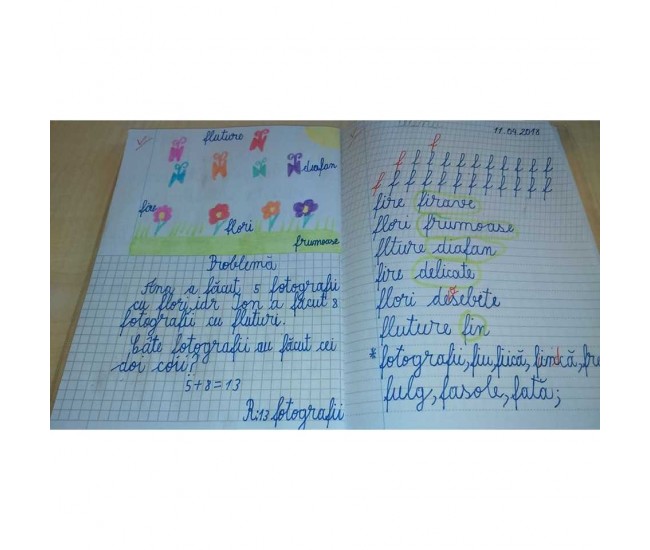 fluture
diafan
fire
flori
frumoase
Problemă
Ana a făcut 5 fotografii
cu flori, iar Ion a făcut 8
fotografii cu fluturi.
Câte fotografii au făcut cei
doi copii?
5+8=13
R: 13 fotografii
11.04.2018
f
f f f f f f f f f f f f
f f f f f f f f f f f f
fire firave
flori frumoase
flture diafan
fire delicate
flori deosebite
fluture fin
* fotografii, fiu, fiică, fiindcă, fr
fulg, fasole, fată;